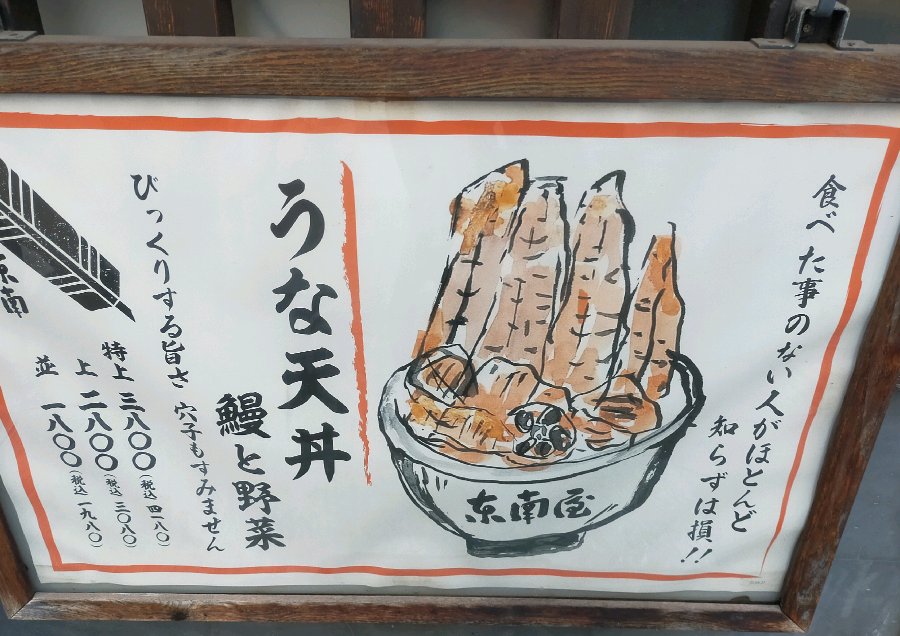 食べた事のない人がほとんど
知らずは損!!
东南屋
うな天丼
鰻と野菜
びっくりする旨さ 穴子もすみません
特上 三八〇〇(税込 四一八〇)
上 二八〇〇(税込 三〇八〇)
並 一八〇〇(税込 一九八〇)
东南